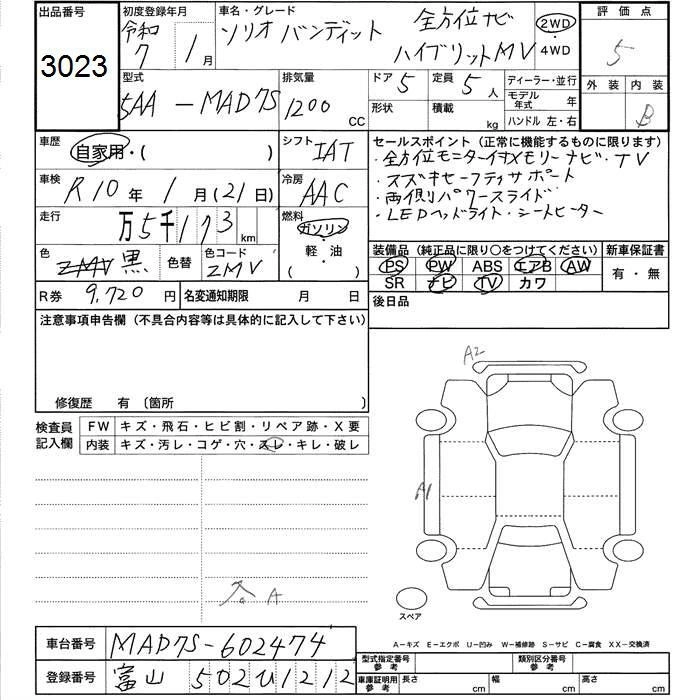 出品番号
3023
初度登録年月
令和
7 1月
車名・グレード
ソリオ バンディット 全方位ナビ
ハイブリットMV
2WD
・
4WD
評価点
5
外装 内装
B
型式
5AA-MAD7S
排気量
1200
CC
ドア 5
定員 5人
形状
積載 kg
ディーラー・並行
モデル年式 年
ハンドル 左・右
車歴
自家用・( )
シフト IAT
車検
R10年1月(21日)
冷房 AAC
走行
万5千173km
燃料
ガソリン
・
軽・油
( )
色
ZMV 黒
色替
色コード
ZMV
R券 9,720円
名変通知期限 月 日
セールスポイント(正常に機能するものに限ります)
・全方位モニター付メモリーナビ・TV
・スズキセーフティサポート
・両側パワースライド
・LEDヘッドライト・シートヒーター
装備品(純正品に限り○をつけてください)
PS PW ABS エアB AW
SR ナビ TV カワ
新車保証書
有・無
後日品
注意事項申告欄(不具合内容等は具体的に記入して下さい)
修復歴 有 〔箇所 〕
検査員
記入欄
FW キズ・飛石・ヒビ割・リペア跡・X要
内装 キズ・汚レ・コゲ・穴・スレ・キレ・破レ
A2
A1
各A
スペア
A-キズ E-エクボ U-凹み W-補修跡 S-サビ C-腐食 XX-交換済
車台番号 MAD7S-602474
登録番号 富山 502ひ1212
型式指定番号
参考
類別区分番号
参考
車庫証明用
参考
長さ cm 幅 cm 高さ cm